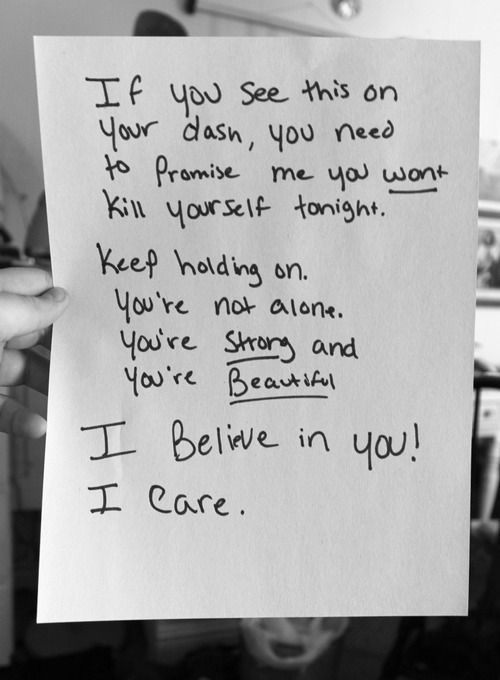 If you see this on
your dash, you need
to Promise me you wont
kill yourself tonight.
Keep holding on.
You're not alone.
You're Strong and
You're Beautiful
I Believe in you!
I Care.